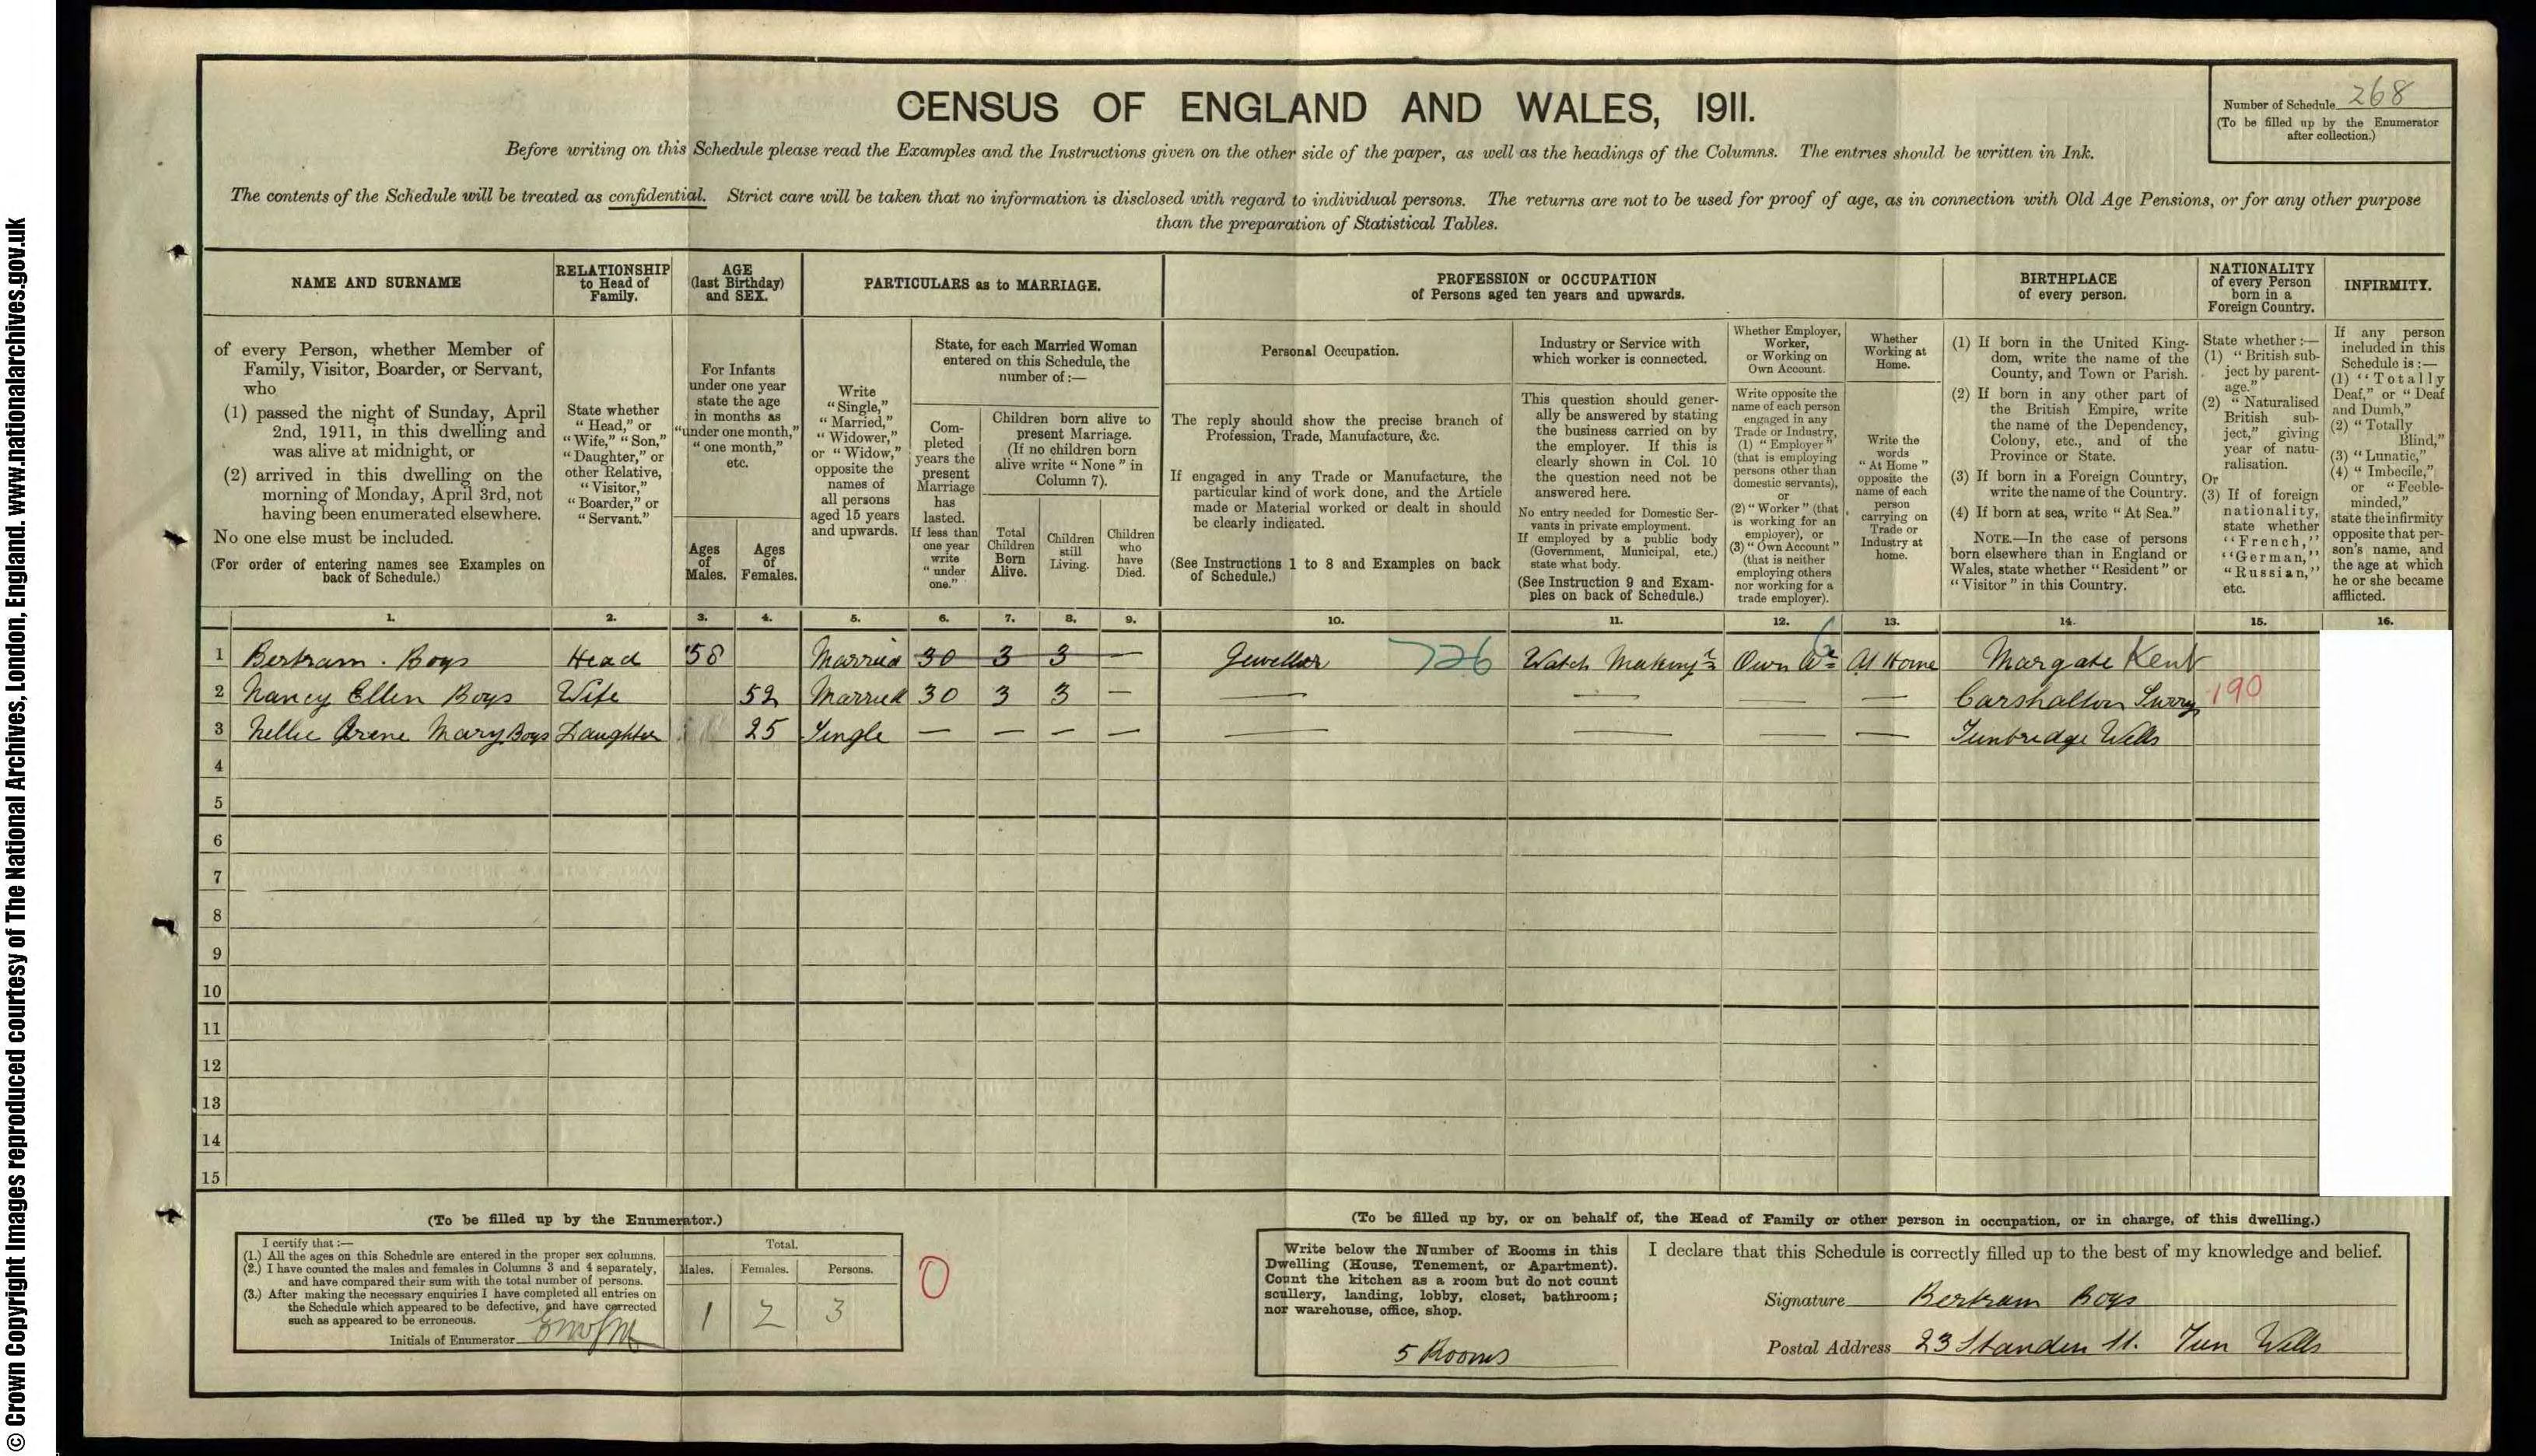 CENSUS OF ENGLAND AND WALES, 1911.
Number of Schedule 268
(To be filled up by the Enumerator
after collection.)
Before writing on this Schedule please read the Examples and the Instructions given on the other side of the paper, as well as the headings of the Columns. The entries should be written in Ink.
The contents of the Schedule will be treated as confidential. Strict care will be taken that no information is disclosed with regard to individual persons. The returns are not to be used for proof of age, as in connection with Old Age Pensions, or for any other purpose
than the preparation of Statistical Tables.
NAME AND SURNAME
of every Person, whether Member of
Family, Visitor, Boarder, or Servant,
who
(1) passed the night of Sunday, April
2nd, 1911, in this dwelling and
was alive at midnight, or
(2) arrived in this dwelling on the
morning of Monday, April 3rd, not
having been enumerated elsewhere.
No one else must be included.
(For order of entering names see Examples on
back of Schedule.)
RELATIONSHIP
to Head of
Family.
State whether
"Head," or
"Wife," "Son,"
"Daughter," or
other Relative,
"Visitor,"
"Boarder," or
"Servant."
AGE
(last Birthday)
and SEX.
For Infants
under one year
state the age
in months as
"under one month,"
"one month,"
etc.
Ages
of
Males.
Ages
of
Females.
PARTICULARS as to MARRIAGE.
Write
"Single,"
"Married,"
"Widower,"
or "Widow,"
opposite the
names of
all persons
aged 15 years
and upwards.
State, for each Married Woman
entered on this Schedule, the
number of:—
Com-
pleted
years the
present
Marriage
has
lasted.
If less than
one year
write
"under
one."
Children born alive to
present Marriage.
(If no children born
alive write "None" in
Column 7).
Total
Children
Born
Alive.
Children
still
Living.
Children
who
have
Died.
PROFESSION or OCCUPATION
of Persons aged ten years and upwards.
Personal Occupation.
The reply should show the precise branch of
Profession, Trade, Manufacture, &c.
If engaged in any Trade or Manufacture, the
particular kind of work done, and the Article
made or Material worked or dealt in should
be clearly indicated.
(See Instructions 1 to 8 and Examples on back
of Schedule.)
Industry or Service with
which worker is connected.
This question should gener-
ally be answered by stating
the business carried on by
the employer. If this is
clearly shown in Col. 10
the question need not be
answered here.
No entry needed for Domestic Ser-
vants in private employment.
If employed by a public body
(Government, Municipal, etc.)
state what body.
(See Instruction 9 and Exam-
ples on back of Schedule.)
Whether Employer,
Worker,
or Working on
Own Account.
Write opposite the
name of each person
engaged in any
Trade or Industry,
(1) "Employer"
(that is employing
persons other than
domestic servants),
or
(2) "Worker" (that
is working for an
employer), or
(3) "Own Account"
(that is neither
employing others
nor working for a
trade employer).
Whether
Working at
Home.
Write the
words
"At Home"
opposite the
name of each
person
carrying on
Trade or
Industry at
home.
BIRTHPLACE
of every person.
(1) If born in the United King-
dom, write the name of the
County, and Town or Parish.
(2) If born in any other part of
the British Empire, write
the name of the Dependency,
Colony, etc., and of the
Province or State.
(3) If born in a Foreign Country,
write the name of the Country.
(4) If born at sea, write "At Sea."
NOTE.—In the case of persons
born elsewhere than in England or
Wales, state whether "Resident" or
"Visitor" in this Country.
NATIONALITY
of every Person
born in a
Foreign Country.
State whether:—
(1) "British sub-
ject by parent-
age."
(2) "Naturalised
British sub-
ject," giving
year of natu-
ralisation.
Or
(3) If of foreign
nationality,
state whether
"French,"
"German,"
"Russian,"
etc.
INFIRMITY.
If any person
included in this
Schedule is:—
(1) "Totally
Deaf," or "Deaf
and Dumb,"
(2) "Totally
Blind,"
(3) "Lunatic,"
(4) "Imbecile,"
or "Feeble-
minded,"
state the infirmity
opposite that per-
son's name, and
the age at which
he or she became
afflicted.
1. 2. 3. 4. 5. 6. 7. 8. 9. 10. 11. 12. 13. 14. 15. 16.
1 Bertram . Boys Head 58 Married 30 3 3 — Jeweller 726 Watch Making Own 6 At Home Margate Kent
2 Nancy Ellen Boys Wife 52 Married 30 3 3 — — — — — Carshalton Surry 190
3 Nellie Irene Mary Boys Daughter 25 Single — — — — — — — — Tunbridge Wells
4
5
6
7
8
9
10
11
12
13
14
15
(To be filled up by the Enumerator.)
I certify that:—
(1.) All the ages on this Schedule are entered in the proper sex columns.
(2.) I have counted the males and females in Columns 3 and 4 separately,
and have compared their sum with the total number of persons.
(3.) After making the necessary enquiries I have completed all entries on
the Schedule which appeared to be defective, and have corrected
such as appeared to be erroneous.
Initials of Enumerator
Total.
Males. Females. Persons.
1 2 3
0
(To be filled up by, or on behalf of, the Head of Family or other person in occupation, or in charge, of this dwelling.)
Write below the Number of Rooms in this
Dwelling (House, Tenement, or Apartment).
Count the kitchen as a room but do not count
scullery, landing, lobby, closet, bathroom;
nor warehouse, office, shop.
5 Rooms
I declare that this Schedule is correctly filled up to the best of my knowledge and belief.
Signature Bertram Boys
Postal Address 23 Standen St. Tun Wells
© Crown Copyright Images reproduced courtesy of The National Archives, London, England. www.nationalarchives.gov.uk